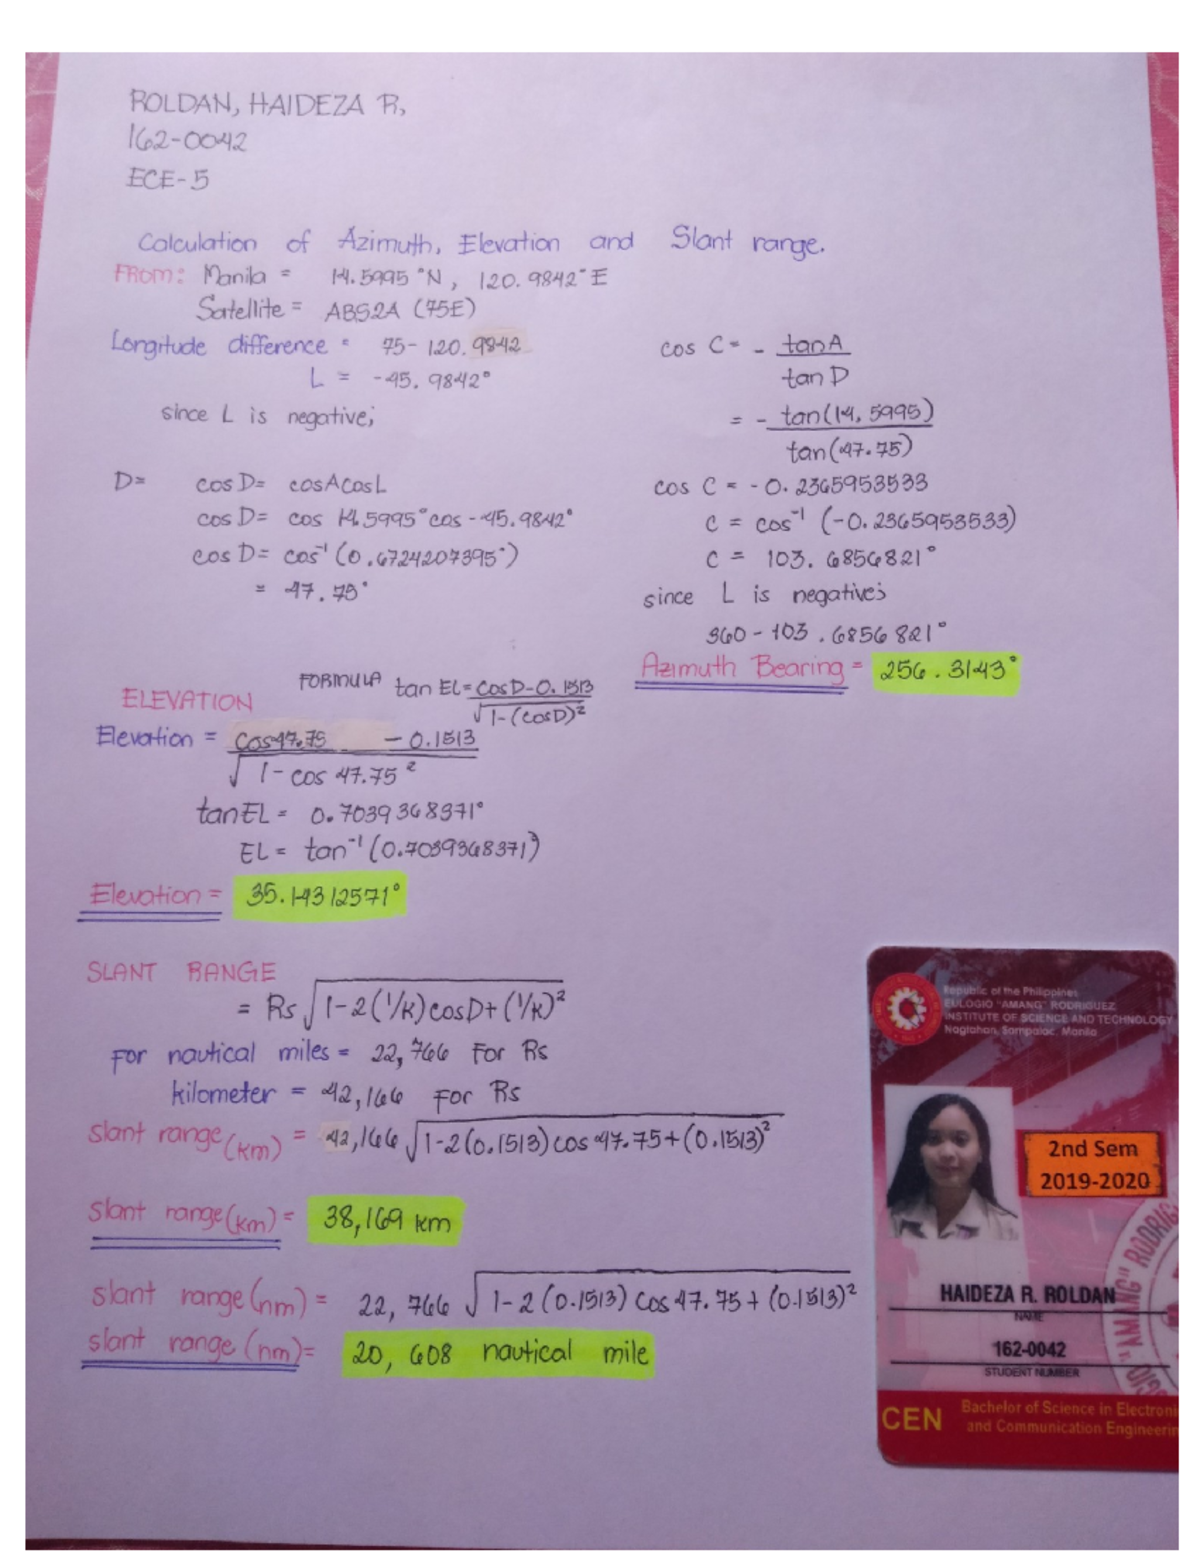 ROLDAN, HAIDEZA R,
162-0042
ECE-5
Calculation of Azimuth, Elevation and Slant range.
FROM: Manila = 14.5995 °N, 120.9842° E
Satellite = ABS2A (75E)
Longitude difference = 75-120.9842
L = -45.9842°
since L is negative;
D= cos D= cosAcosL
cos D= cos 14.5995° cos -45.9842°
cos D= cos⁻¹ (0.6724207395°)
= 47.75°
cos C = - tanA / tan D
= - tan(14.5995) / tan(47.75)
cos C = -0.2365953533
C = cos⁻¹ (-0.2365953533)
C = 103.6856821°
since L is negative;
360-103.6856821°
Azimuth Bearing = 256.3143°
ELEVATION
FORMULA tan EL = cosD-0.1513 / √1-(cosD)²
Elevation = cos47.75 - 0.1513 / √1-cos 47.75²
tanEL = 0.7039368371°
EL = tan⁻¹ (0.7039368371)
Elevation = 35.14312571°
SLANT RANGE
= Rs √1-2(1/K)cosD+(1/K)²
For nautical miles = 22,766 For Rs
kilometer = 42,166 For Rs
slant range(km) = 42,166 √1-2(0.1513) cos 47.75+(0.1513)²
Slant range(km) = 38,169 km
slant range(nm) = 22,766 √1-2(0.1513) cos 47.75+(0.1513)²
slant range (nm) = 20,608 nautical mile
Republic of the Philippines
EULOGIO "AMANG" RODRIGUEZ
INSTITUTE OF SCIENCE AND TECHNOLOGY
Nagtahan, Sampaloc, Manila
2nd Sem
2019-2020
"AMANG" RODRIG
HAIDEZA R. ROLDAN
NAME
162-0042
STUDENT NUMBER
CEN
Bachelor of Science in Electroni
and Communication Engineerin